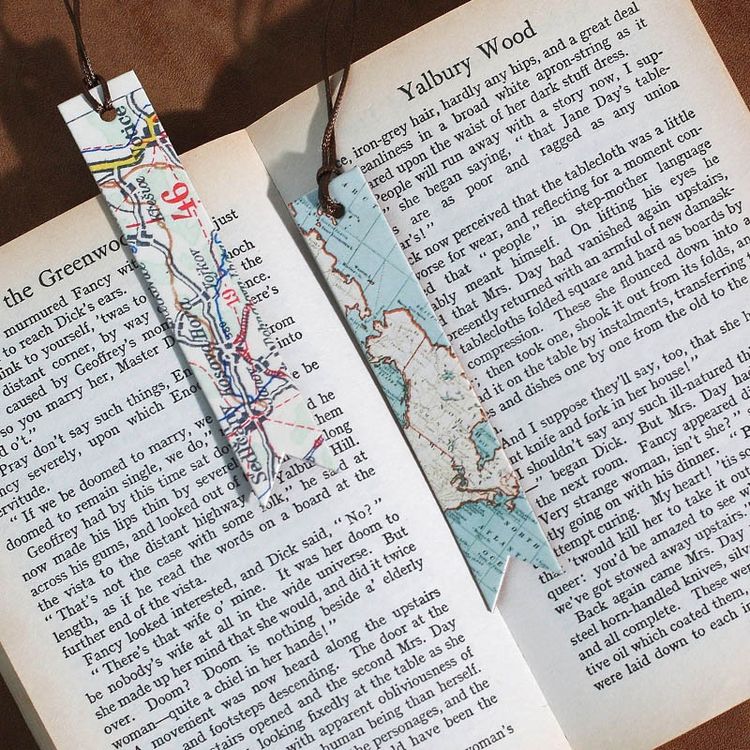 the Greenwoo
just
murmured Fancy wi
to reach Dick's ears.
ink to yourself, 'twas to
distant corner, by way
caused by Geoffrey's mom
so you marry her, Master D
d o't."
Pray don't say such things, En
ncy severely, upon which Eno
be
rvitude.
"If we be doomed to marry, we
d he
doomed to remain single, we do,"
them
Geoffrey had by this time sat do
Hill.
now made his lips thin by severe
long
across his gums, and looked out o
the vista to the distant highway
"That's not the case with some folk," he said at
length, as if he read the words on a board at the
further end of the vista.
Fancy looked interested, and Dick said, "No?"
"There's that wife o' mine. It was her doom to
be nobody's wife at all in the wide universe. But
she made up her mind that she would, and did it twice
over. Doom? Doom is nothing beside a' elderly
woman—quite a chiel in her hands!"
A movement was now heard along the upstairs
and footsteps descending. The door at the
stairs opened and the second Mrs. Day
looking fixedly at the table as she
with apparent obliviousness of
human being than herself.
the personages, and the
could have been the
woman's
Yalbury Wood
iron-grey hair, hardly any hips, and a great deal
eanliness in a broad white apron-string as it
red upon the waist of her dark stuff dress.
People will run away with a story now, I sup-
she began saying, "that Jane Day's table-
are as poor and ragged as any union
's!"
now perceived that the tablecloth was a little
orse for wear, and reflecting for a moment con-
that "people" in step-mother language
ably meant himself. On lifting his eyes he
that Mrs. Day had vanished again upstairs,
esently returned with an armful of new damask-
tablecloths folded square and hard as boards by
compression. These she flounced down into a
then took one, shook it out from its folds, and
d it on the table by instalments, transferring
and dishes one by one from the old to the
And I suppose they'll say, too, that she h
knife and fork in her house!"
I shouldn't say any such ill-natured th
began Dick. But Mrs. Day ha
the next room. Fancy appeared
Very strange woman, isn't she?"
ly going on with his dinner. "
tempt curing. My heart! 'tis s
would kill her to take it out
queer: you'd be amazed to see w
we've got stowed away upstairs,
Back again came Mrs. Day
steel horn-handled knives, silv
and all complete. These we
tive oil which coated them,
were laid down to each i
46
19
NORTH
OCE